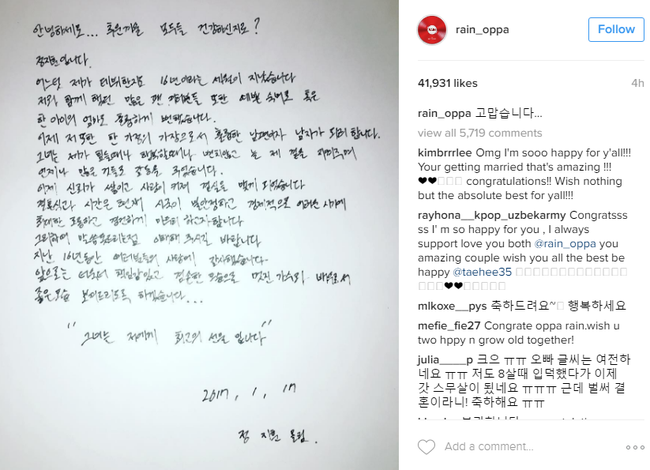 안녕하세요... 추운겨울 모두들 건강하신지요?
정지훈입니다.
어느덧 제가 데뷔한지도 16년이라는 세월이 지났습니다
저와 함께 했던 많은 팬 여러분들 또한 세월 속에서 혹은
한 아이의 엄마로 훌륭하게 변했습니다.
이제 저 또한 한 가정의 가장으로서 훌륭한 남편이자 남자가 되려 합니다.
그녀는 제가 힘들때나 행복할때나 변치않고 늘 제 곁을 지켜주며
언제나 많은 감동을 주었습니다.
이제 신뢰가 쌓이고 사랑이 커져 결실을 맺게 되었습니다
결혼식과 시간은 현재 시국이 불안정하고 경제적으로 어려운 시기에
최대한 조용하고 경건하게 하려고 합니다
그리하여 말씀 못드리는점 이해해 주시길 바랍니다.
지난 16년동안 여러분들의 사랑에 감사했습니다.
앞으로는 더욱더 책임감있고 겸손한 모습으로 멋진 가수와 배우로서
좋은모습 보여드리도록 하겠습니다...
"그녀는 저에게 최고의 선물 입니다"
2017, 1, 17
정 지훈 올림.
rain_oppa
Follow
41,931 likes 4h
rain_oppa 고맙습니다...
view all 5,719 comments
kimbrrrlee Omg I'm sooo happy for y'all!!!
Your getting married that's amazing !!!
❤❤ congratulations!! Wish nothing
but the absolute best for yall!!!
rayhona__kpop_uzbekarmy Congratsss
ss I' m so happy for you , I always
support love you both @rain_oppa you
amazing couple wish you all the best be
happy @taehee35
❤❤
mlkoxe__pys 축하드려요~ 행복하세요
mefie_fie27 Congrate oppa rain.wish u
two hppy n grow old together!
julia____p 크으 ㅠㅠ 오빠 글씨는 여전하
네요 ㅠㅠ 저도 8살때 입덕했다가 이제
갓 스무살이 됬네요 ㅠㅠㅠ 근데 벌써 결
혼이라니! 축하해요 ㅠㅠ
Add a comment...